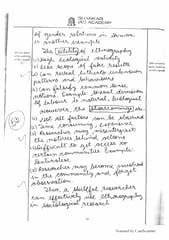 SHANKAR
IAS ACADEMY
of gender relations in
is another example
The utility of ethnography
high ecological validity
less scope of fake results
can reveal hitherto unknown
patterns and behaviours
can falsify common sense
notions Example sexual division
of labour is natural, biological
However the shortcomings
not all factors can be
Time consuming, expensive
Researcher may misinterpret
the motives behind actions
Difficult to get access to
certain communities Example
Researcher may become involved
in the community and forget
observation
Thus, a skillful researcher
can effectively use ethnography
in sociological research
Scanned by CamScanner